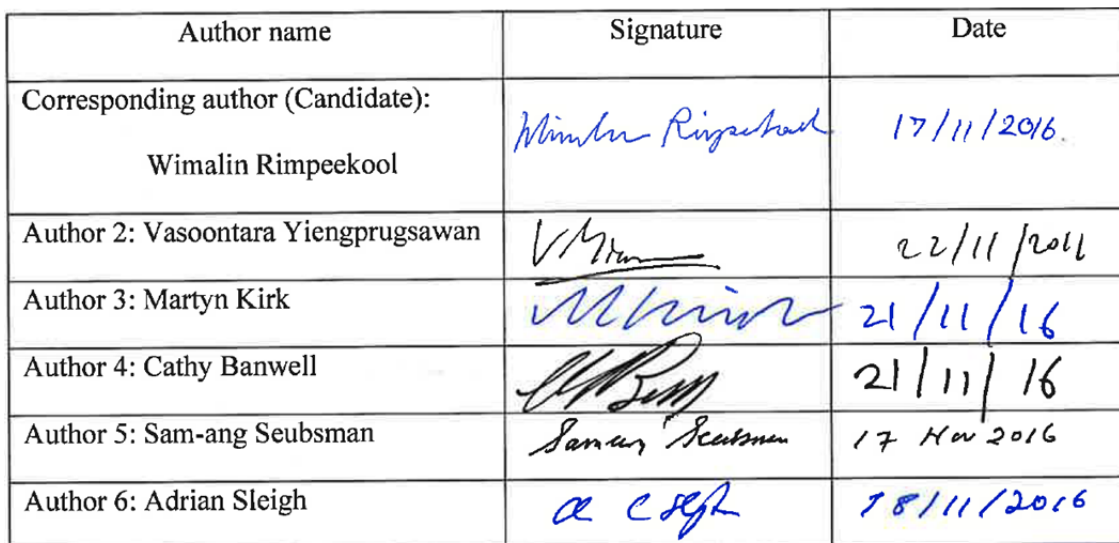 Author name Signature Date
Corresponding author (Candidate):
Wimalin Rimpeekool Wimalin Rimpeekool 17/11/2016
Author 2: Vasoontara Yiengprugsawan 22/11/2016
Author 3: Martyn Kirk M Kirk 21/11/16
Author 4: Cathy Banwell 21/11/16
Author 5: Sam-ang Seubsman Sam-ang Seubsman 17 Nov 2016
Author 6: Adrian Sleigh A C Sleigh 18/11/2016